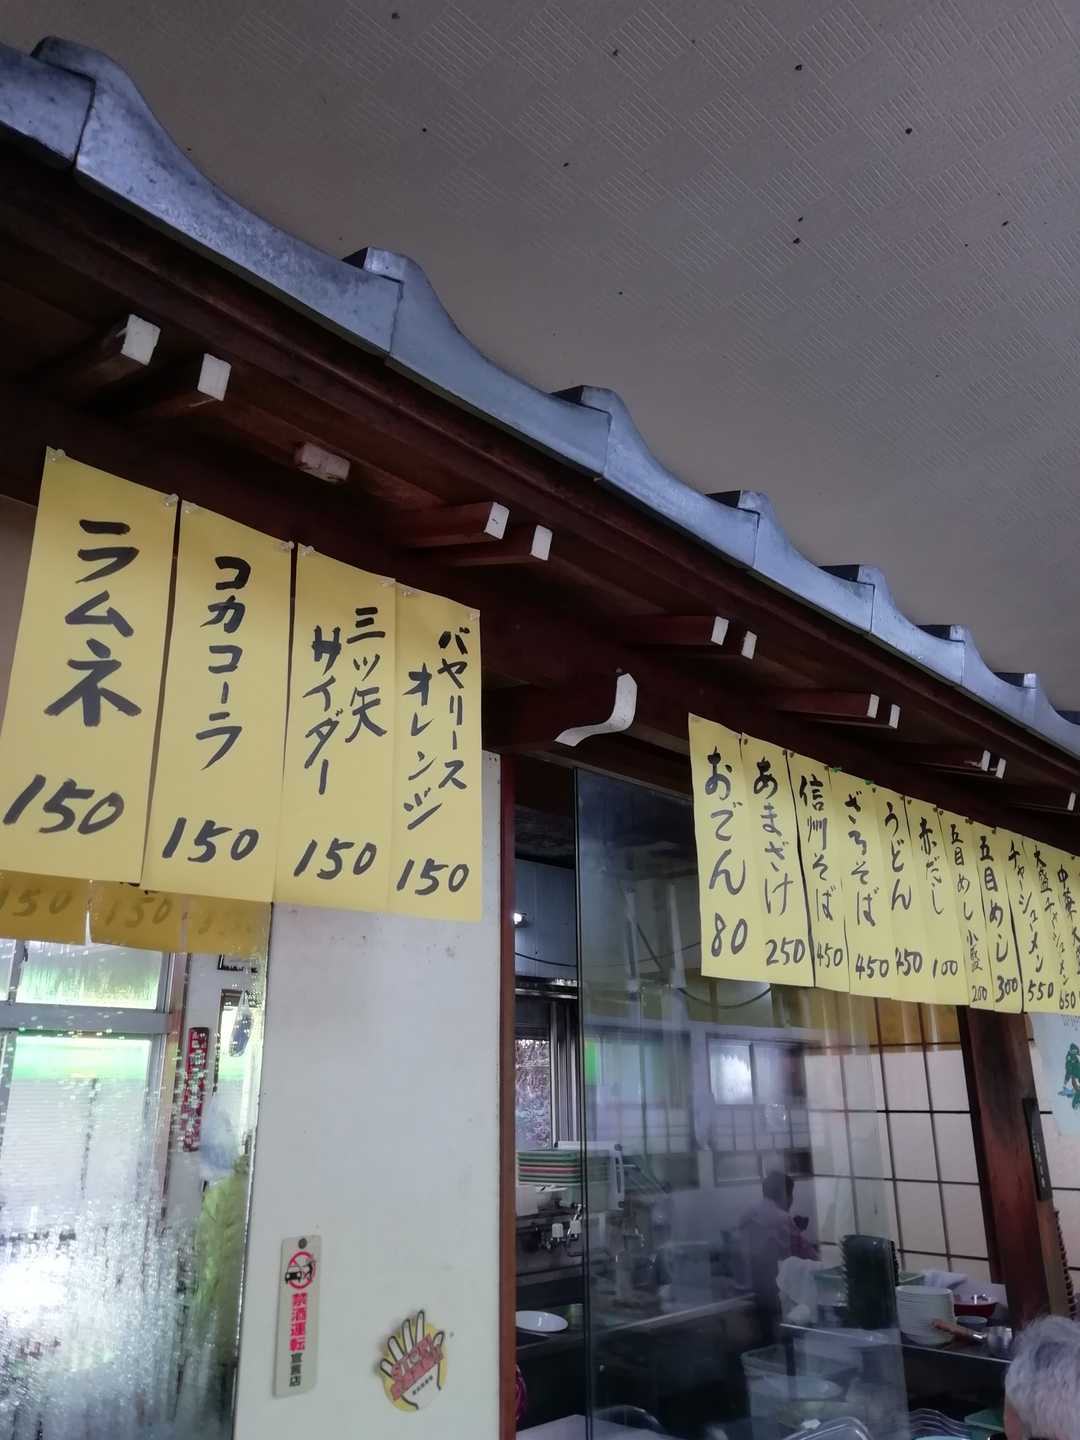 ラムネ
150
コカコーラ
150
三ツ矢
サイダー
150
バヤリース
オレンヂ
150
おでん
80
あまざけ
250
信州そば
450
ざるそば
450
うどん
450
赤だし
100
五目めし小盛
200
五目めし
300
チャーシューメン
550
大盛チャーシューメン
650
150
150
禁酒運転
宣言店